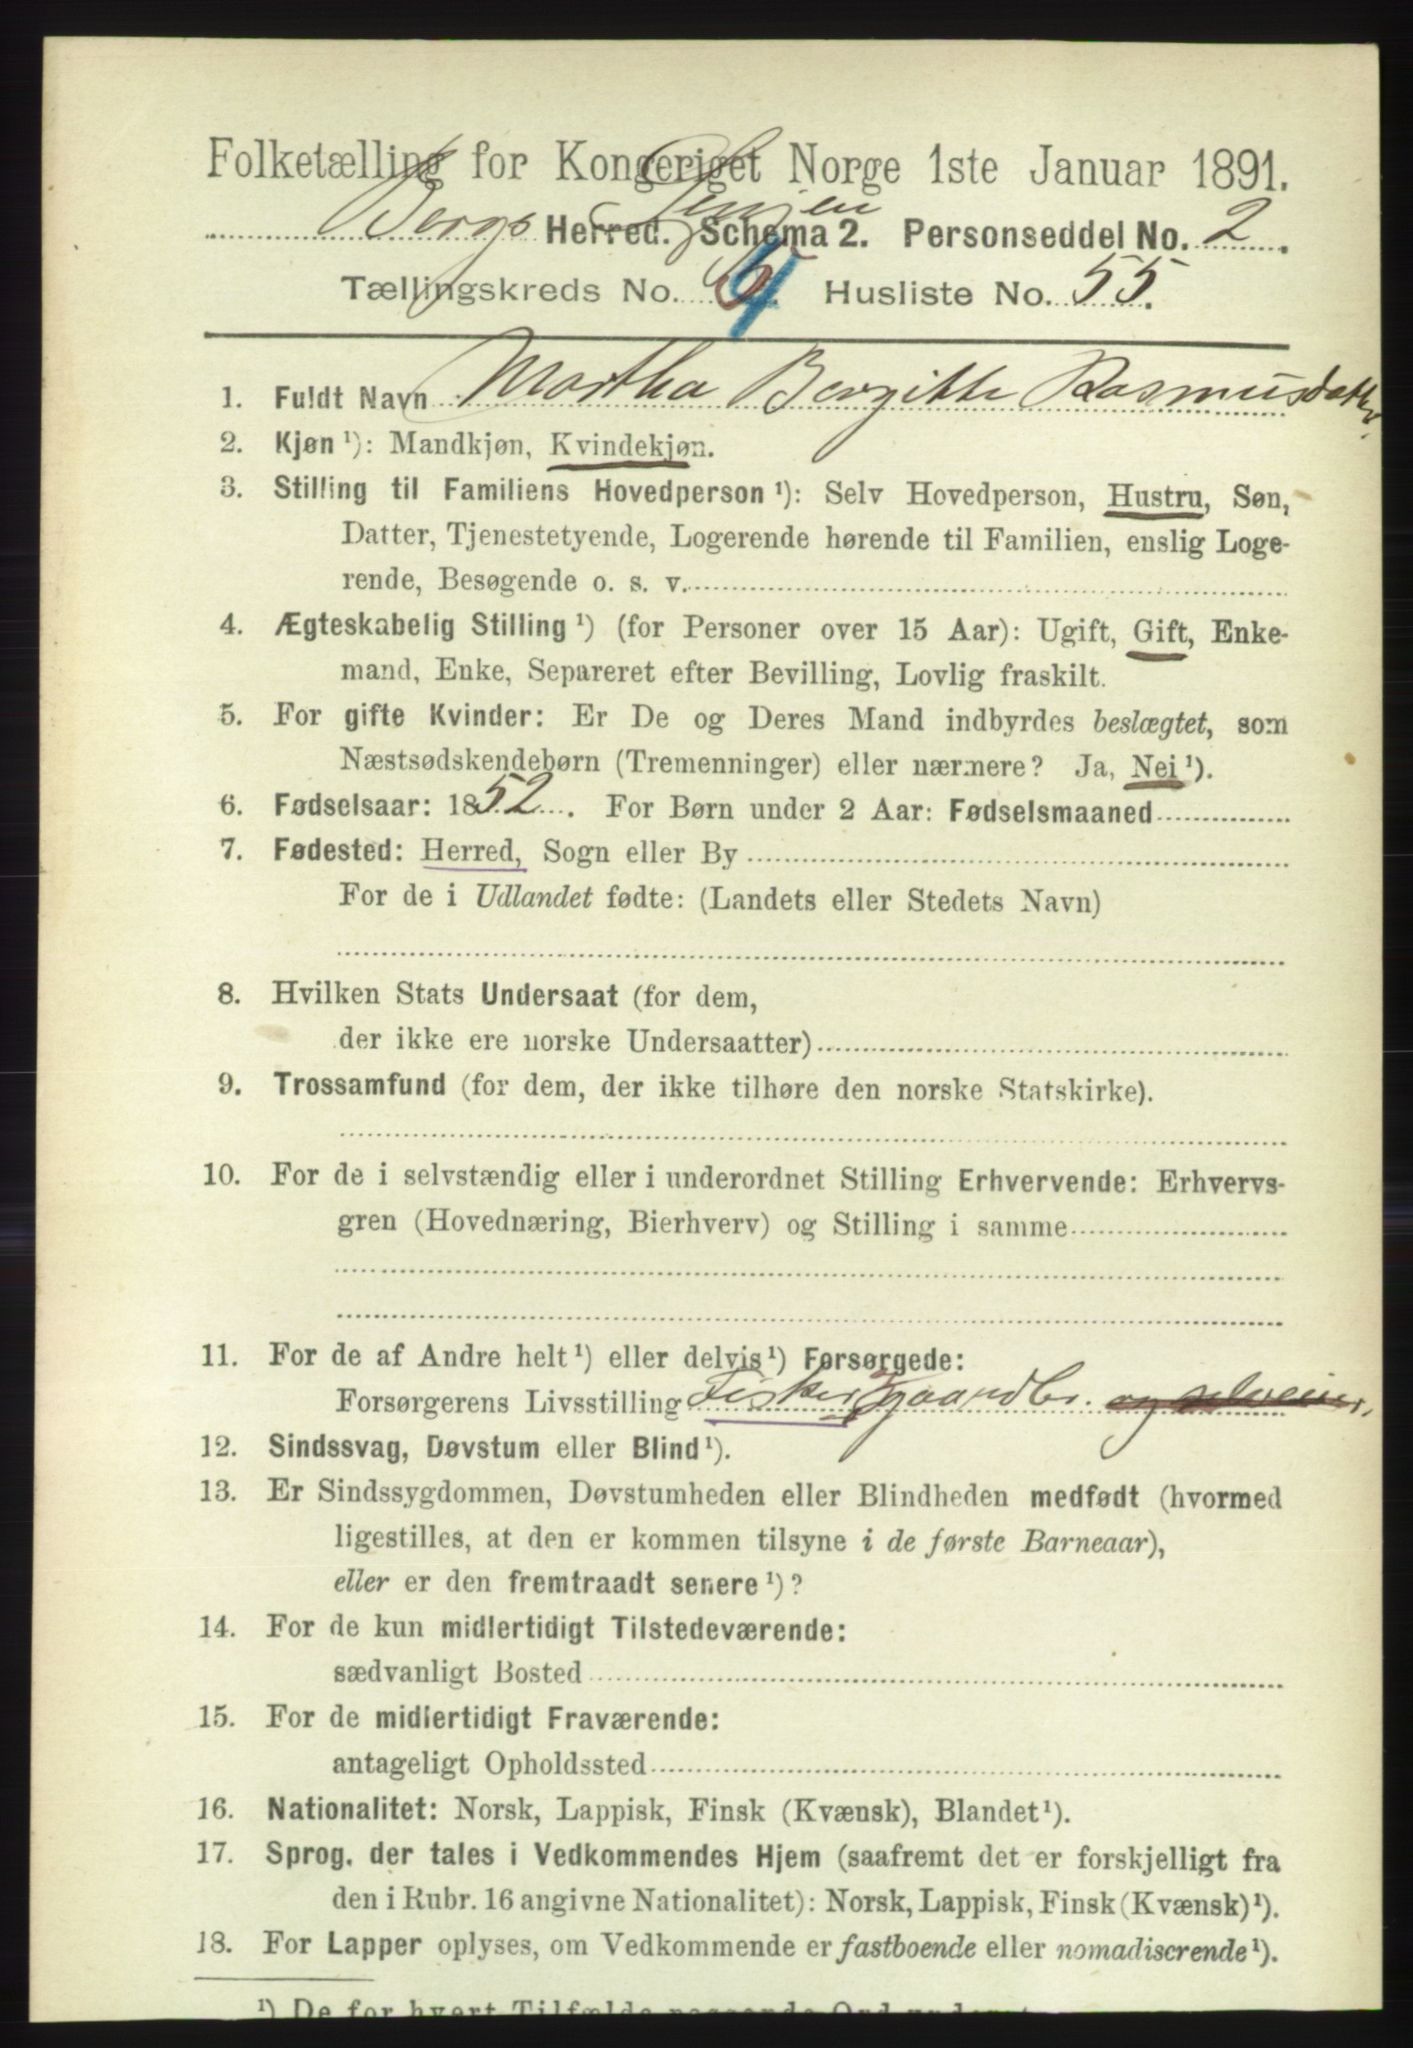 Folketælling for Kongeriget Norge 1ste Januar 1891.
Bergs Herred. Senjen Schema 2. Personseddel No. 2.
Tællingskreds No. 4. Husliste No. 55.
1. Fuldt Navn Martha Bergitte Rasmusdatter.
2. Kjøn ¹): Mandkjøn, Kvindekjøn.
3. Stilling til Familiens Hovedperson ¹): Selv Hovedperson, Hustru, Søn,
Datter, Tjenestetyende, Logerende hørende til Familien, enslig Loge-
rende, Besøgende o. s. v.
4. Ægteskabelig Stilling ¹) (for Personer over 15 Aar): Ugift, Gift, Enke-
mand, Enke, Separeret efter Bevilling, Lovlig fraskilt.
5. For gifte Kvinder: Er De og Deres Mand indbyrdes beslægtet, som
Næstsødskendebørn (Tremenninger) eller nærmere? Ja, Nei ¹).
6. Fødselsaar: 1852. For Børn under 2 Aar: Fødselsmaaned
7. Fødested: Herred, Sogn eller By
For de i Udlandet fødte: (Landets eller Stedets Navn)
8. Hvilken Stats Undersaat (for dem,
der ikke ere norske Undersaatter)
9. Trossamfund (for dem, der ikke tilhøre den norske Statskirke).
10. For de i selvstændig eller i underordnet Stilling Erhvervende: Erhvervs-
gren (Hovednæring, Bierhverv) og Stilling i samme
11. For de af Andre helt ¹) eller delvis ¹) Forsørgede:
Forsørgerens Livsstilling Fisker Gaardbr. og selveier.
12. Sindssvag, Døvstum eller Blind ¹).
13. Er Sindssygdommen, Døvstumheden eller Blindheden medfødt (hvormed
ligestilles, at den er kommen tilsyne i de første Barneaar),
eller er den fremtraadt senere ¹)?
14. For de kun midlertidigt Tilstedeværende:
sædvanligt Bosted
15. For de midlertidigt Fraværende:
antageligt Opholdssted
16. Nationalitet: Norsk, Lappisk, Finsk (Kvænsk), Blandet ¹).
17. Sprog, der tales i Vedkommendes Hjem (saafremt det er forskjelligt fra
den i Rubr. 16 angivne Nationalitet): Norsk, Lappisk, Finsk (Kvænsk) ¹).
18. For Lapper oplyses, om Vedkommende er fastboende eller nomadiserende ¹).
¹) De for hvert Tilfælde passende Ord